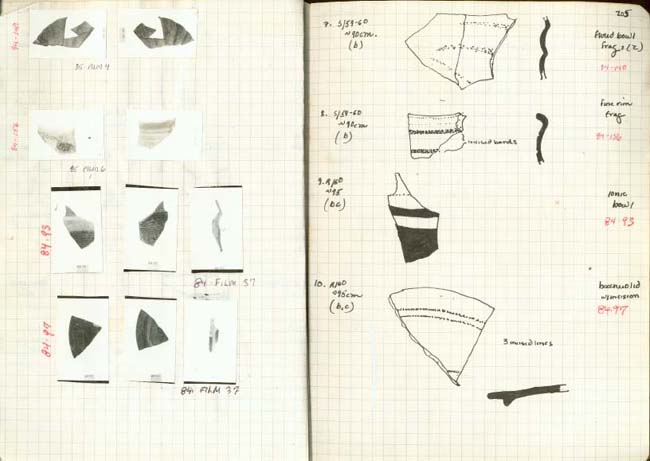 84-140
85 FILM 4
84-156
85 FILM 6
84.93
84. FILM 37
84.97
84. FILM 37
205
7. S/59-60
~90cm.
(b)
bowl
frags (2)
84-140
8. S/59-60
~90cm
(b)
incised bands
fine rim
frag
84-156
9. R/60
~95
(b,c)
ionic
bowl
84.93
10. R/60
~95cm
(b,c)
3 incised lines
w incision
84.97